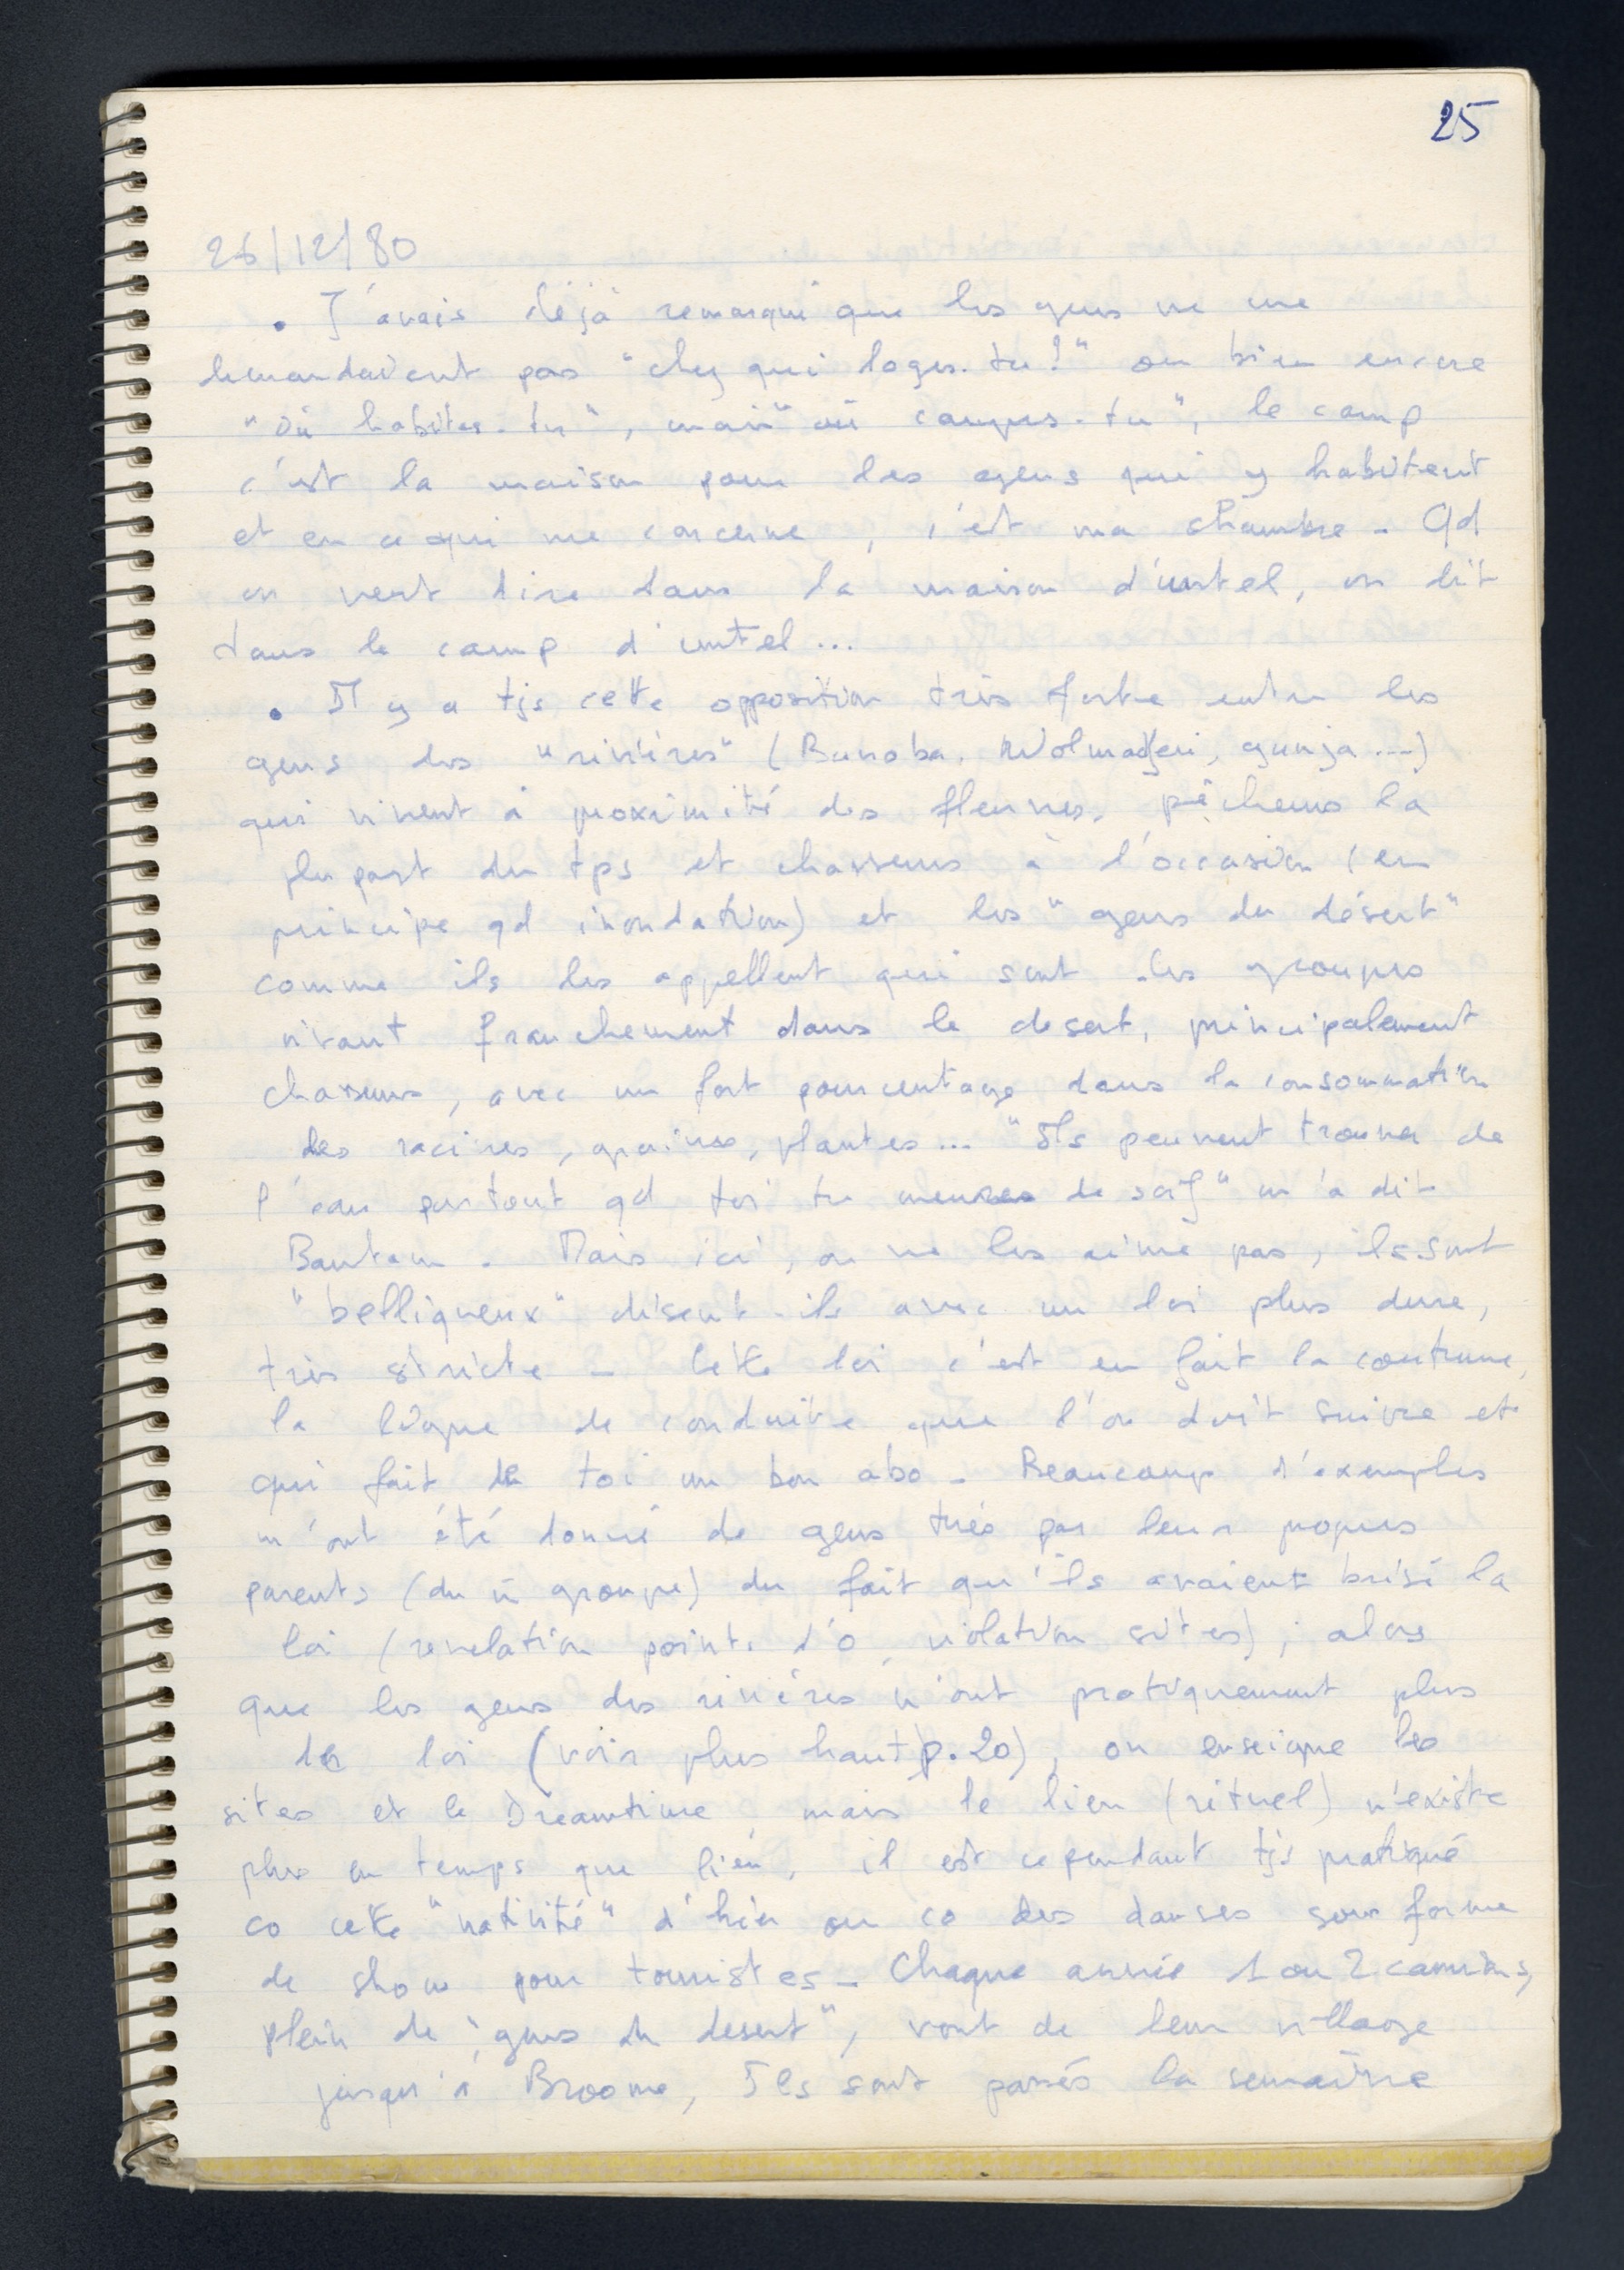 25
26/12/80
. J'avais déjà remarqué que les gens ne me
demandaient pas "chez qui loges-tu?" ou bien encore
"où habites-tu", mais "où campes-tu", le camp
c'est la maison pour les gens qui y habitent
et en ce qui me concerne, c'est ma chambre - Qd
on veut dire dans la maison d'untel, on dit
dans le camp d'untel...
. Il y a tjs cette opposition très forte entre les
gens des "rivières" (Bunoba, gunja ...)
qui vivent à proximité des fleuves, pêcheurs la
plupart du tps et chasseurs à l'occasion (en
principe qd inondation) et les "gens du désert"
comme ils les appellent qui sont les groupes
vivant franchement dans le desert, principalement
chasseurs, avec un fort pourcentage dans la consommation
des racines, graines, plantes... "Ils peuvent trouver de
l'eau partout qd toi tu meures de soif" m'a dit
Bantam. Mais ici, on ne les aime pas, ils sont
"belliqueux" disent-ils avec un loi plus dure,
très stricte - Cette loi c'est en fait la coutume,
la ligne de conduite que l'on doit suivre et
qui fait de toi un bon abo - Beaucoup d'exemples
m'ont été donné de gens tués par leur propres
parents (du m̂ groupe) du fait qu'ils avaient brisé la
loi (revelation points d'o, violation sites); alors
que les gens des rivières n'ont pratiquement plus
de loi (voir plus haut p.20), on enseigne les
sites et le Dreamtime, mais le lien (rituel) n'existe
plus en temps que lien, il est cependant tjs pratiqué
co cette "nativité" d'hier ou co des danses sous forme
de show pour touristes - Chaque année 1 ou 2 camions,
plein de "gens du desert", vont de leur village
jusqu'à Broome, Ils sont passés la semaine